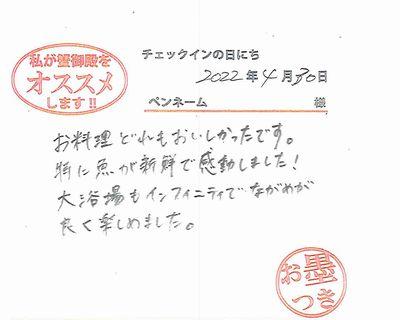 私が蟹御殿を
オススメ
します!!
チェックインの日にち
2022年4月30日
ペンネーム 様
お料理どれもおいしかったです。
特に魚が新鮮で感動しました!
大浴場もインフィニティでながめが
良く楽しめました。
お墨
つき